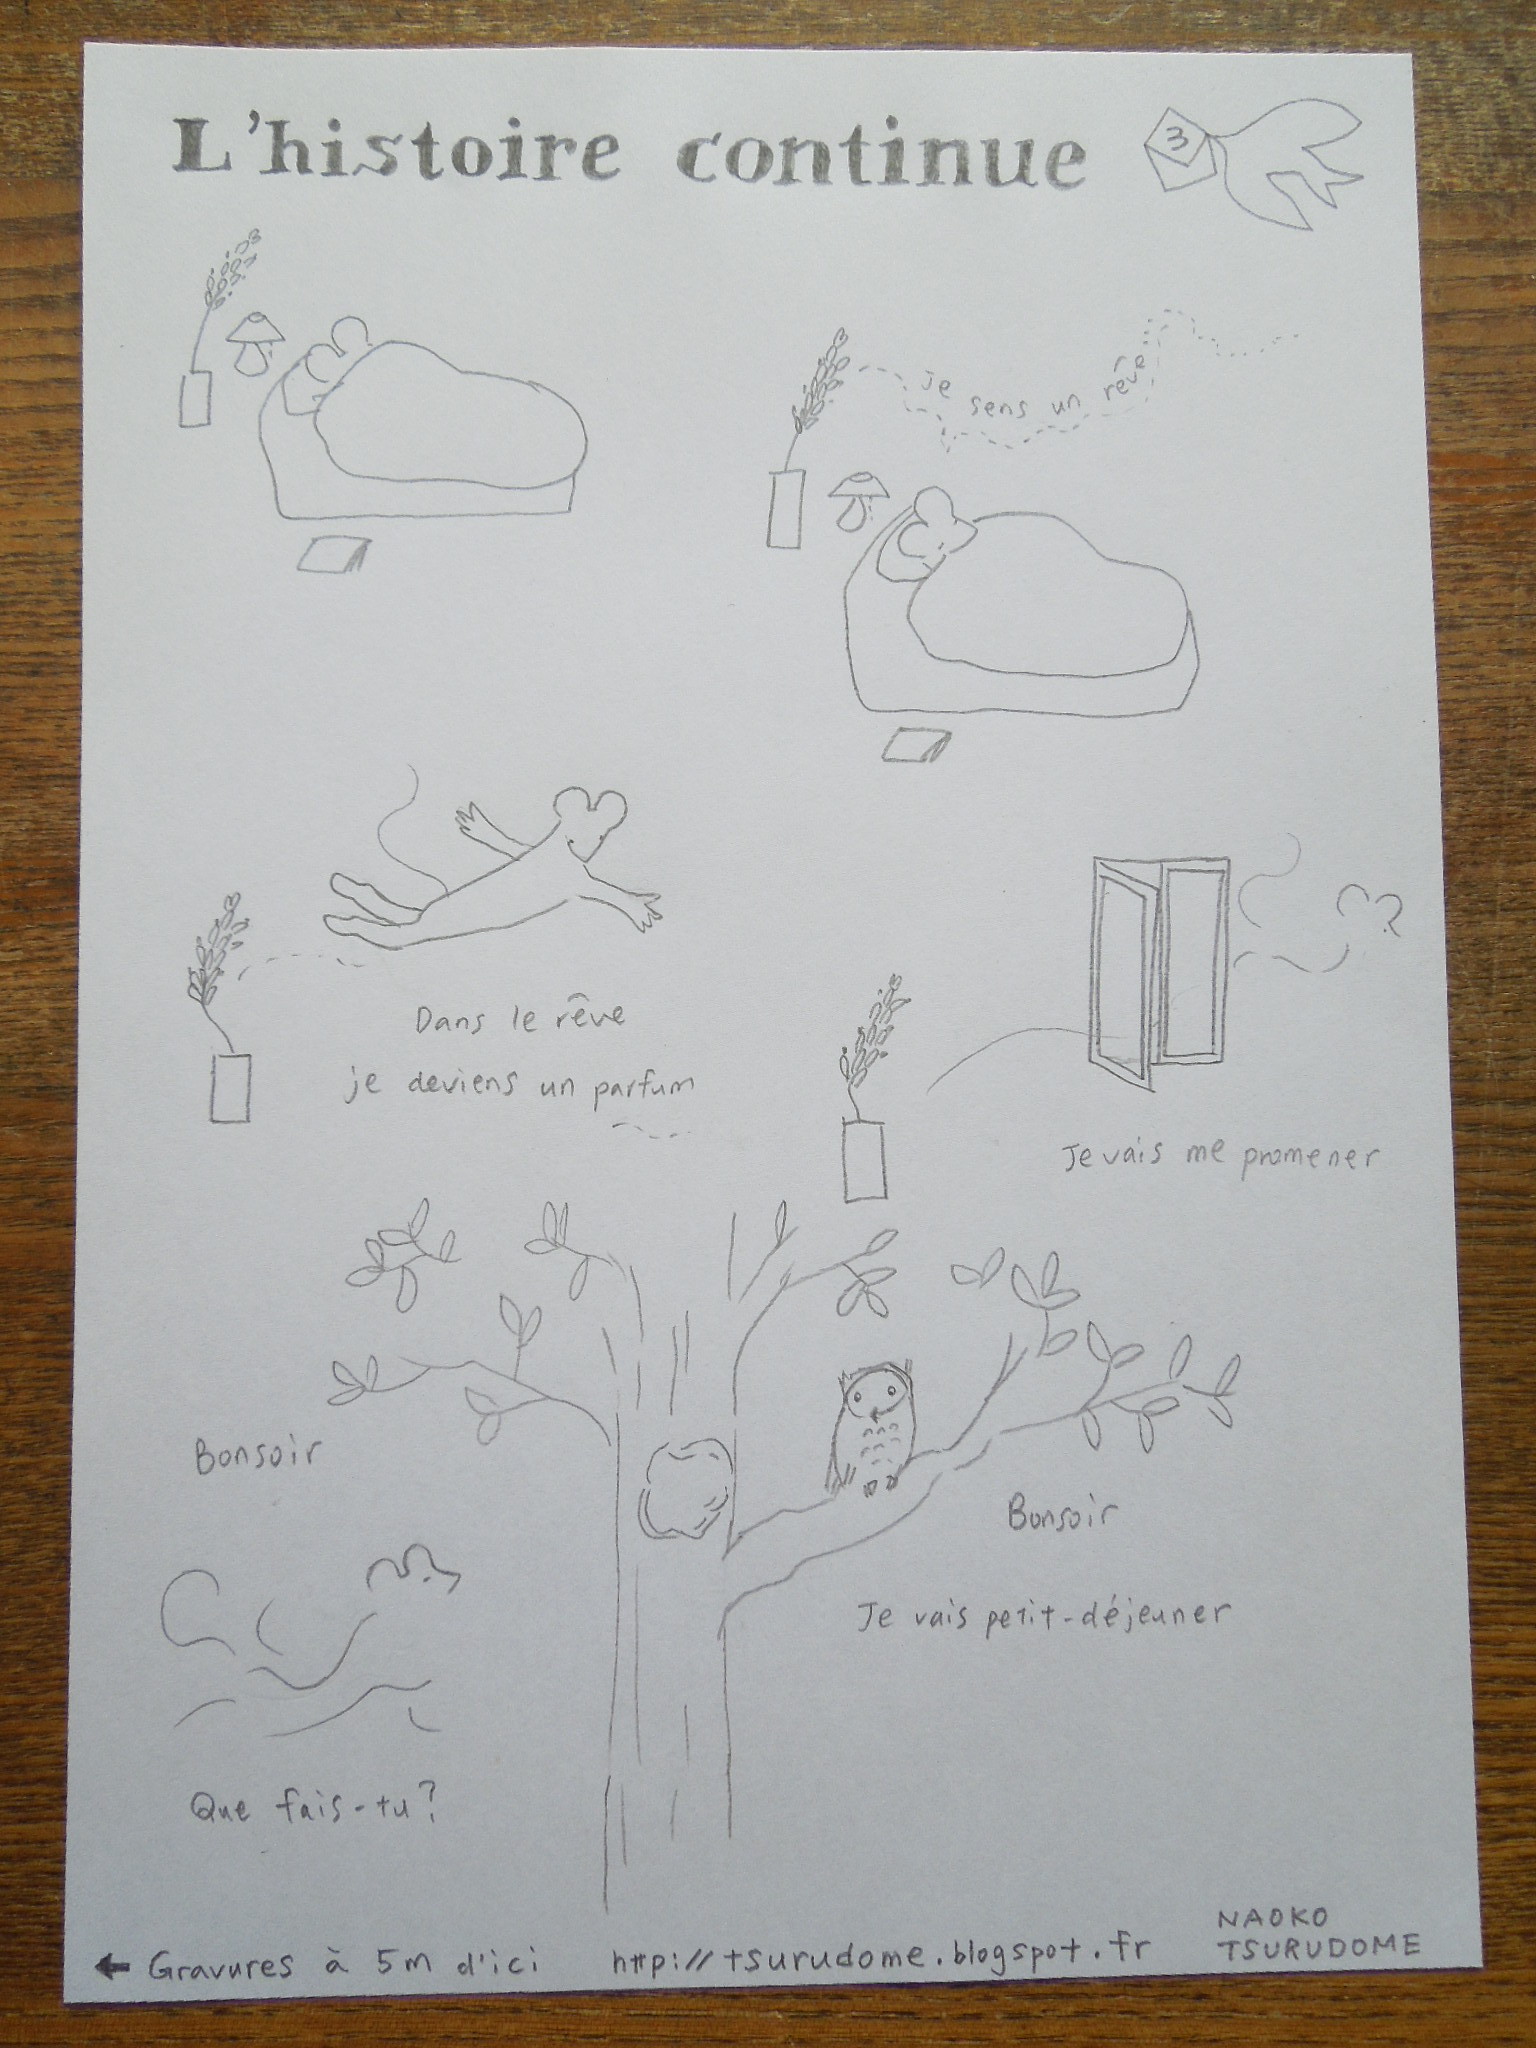 L'histoire continue
3
je sens un rêve
Dans le rêve
je deviens un parfum
Je vais me promener
Bonsoir
Bonsoir
Je vais petit-déjeuner
Que fais-tu?
← Gravures à 5m d'ici
http://tsurudome.blogspot.fr
NAOKO
TSURUDOME